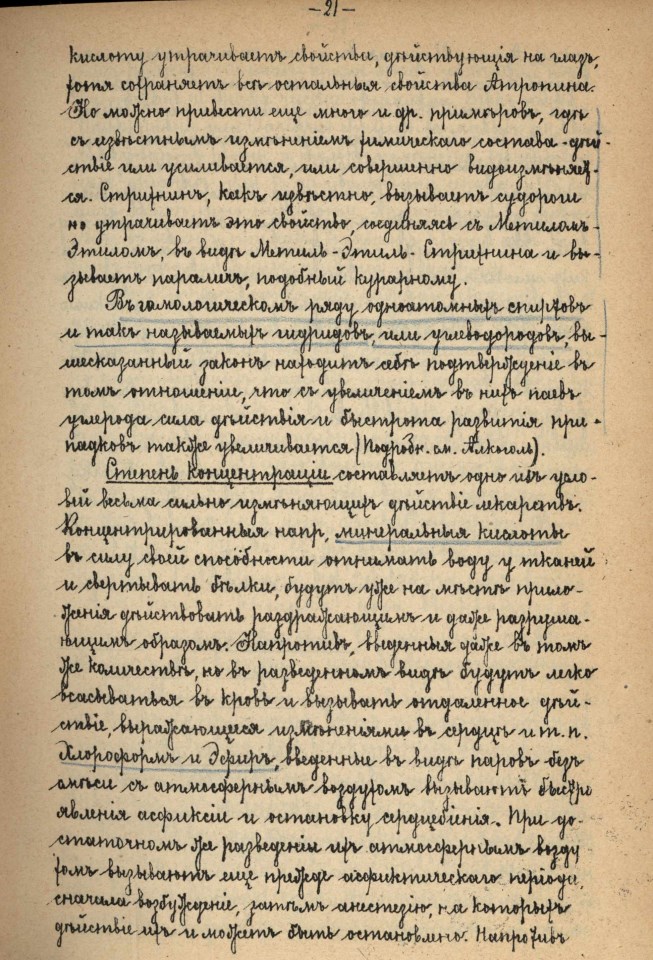 — 21 —
кислоту утрачиваетъ свойства, дѣйствующія на глазъ,
хотя сохраняетъ всѣ остальныя свойства Атропина.
Но можно привести еще много и др. примѣровъ, гдѣ
съ извѣстнымъ измѣненіемъ химическаго состава - дѣй-
ствіе или усиливается, или совершенно видоизмѣняет-
ся. Стрихнинъ, какъ извѣстно, вызываетъ судороги
но утрачиваетъ это свойство, соединяясь съ Метиломъ-
Этиломъ, въ видѣ Метиль-Этиль-Стрихнина и вы-
зываетъ параличъ, подобный курарному.
Въ гомологическомъ ряду одноатомныхъ спиртовъ
и такъ называемыхъ гидридовъ, или углеводородовъ, вы-
шесказанный законъ находитъ себѣ подтвержденіе въ
томъ отношеніе, что съ увеличеніемъ въ нихъ паевъ
углерода сила дѣйствія и быстрота развитія при-
падковъ также увеличивается (Подробн. см. Алкоголь).
Степень концентраціи составляетъ одно изъ усло-
вій весьма сильно измѣняющихъ дѣйствіе лекарствъ.
Концентрированныя напр, минеральныя кислоты
въ силу своей способности отнимать воду у тканей
и свертывать бѣлки, будутъ уже на мѣстѣ прило-
женія дѣйствовать раздражающимъ и даже разруша-
ющимъ образомъ. Напротивъ, введенныя даже въ томъ
же количествѣ, но въ разведенномъ видѣ будутъ легко
всасываться въ кровь и вызывать отдаленное дѣй-
ствіе, выражающееся измѣненіями въ сердцѣ и т. п.
Хлороформъ и Эфиръ, введенные въ видѣ паровъ безъ
смѣси съ атмосфернымъ воздухомъ вызываютъ быстро
явленія асфиксіи и остановку сердцебіенія. При до-
статочномъ же разведеніи ихъ атмосфернымъ возду
хомъ вызываютъ еще прежде асфиктическаго періода,
сначала возбужденіе, затѣмъ анестезію, на которыхъ
дѣйствіе ихъ и можетъ быть остановлено. Напротивъ